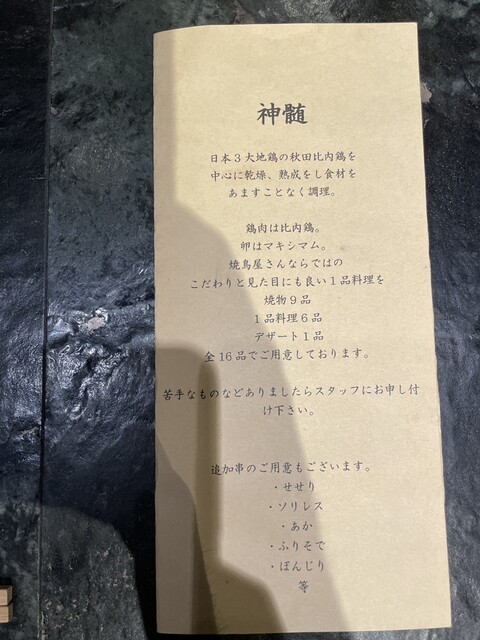 神髄
日本3大地鶏の秋田比内鶏を
中心に乾燥、熟成をし食材を
あますことなく調理。
鶏肉は比内鶏。
卵はマキシマム。
焼鳥屋さんならではの
こだわりと見た目にも良い1品料理を
焼物9品
1品料理6品
デザート1品
全16品でご用意しております。
苦手なものなどありましたらスタッフにお申し付
け下さい。
追加串のご用意もございます。
・せせり
・ソリレス
・あか
・ふりそで
・ぼんじり
等